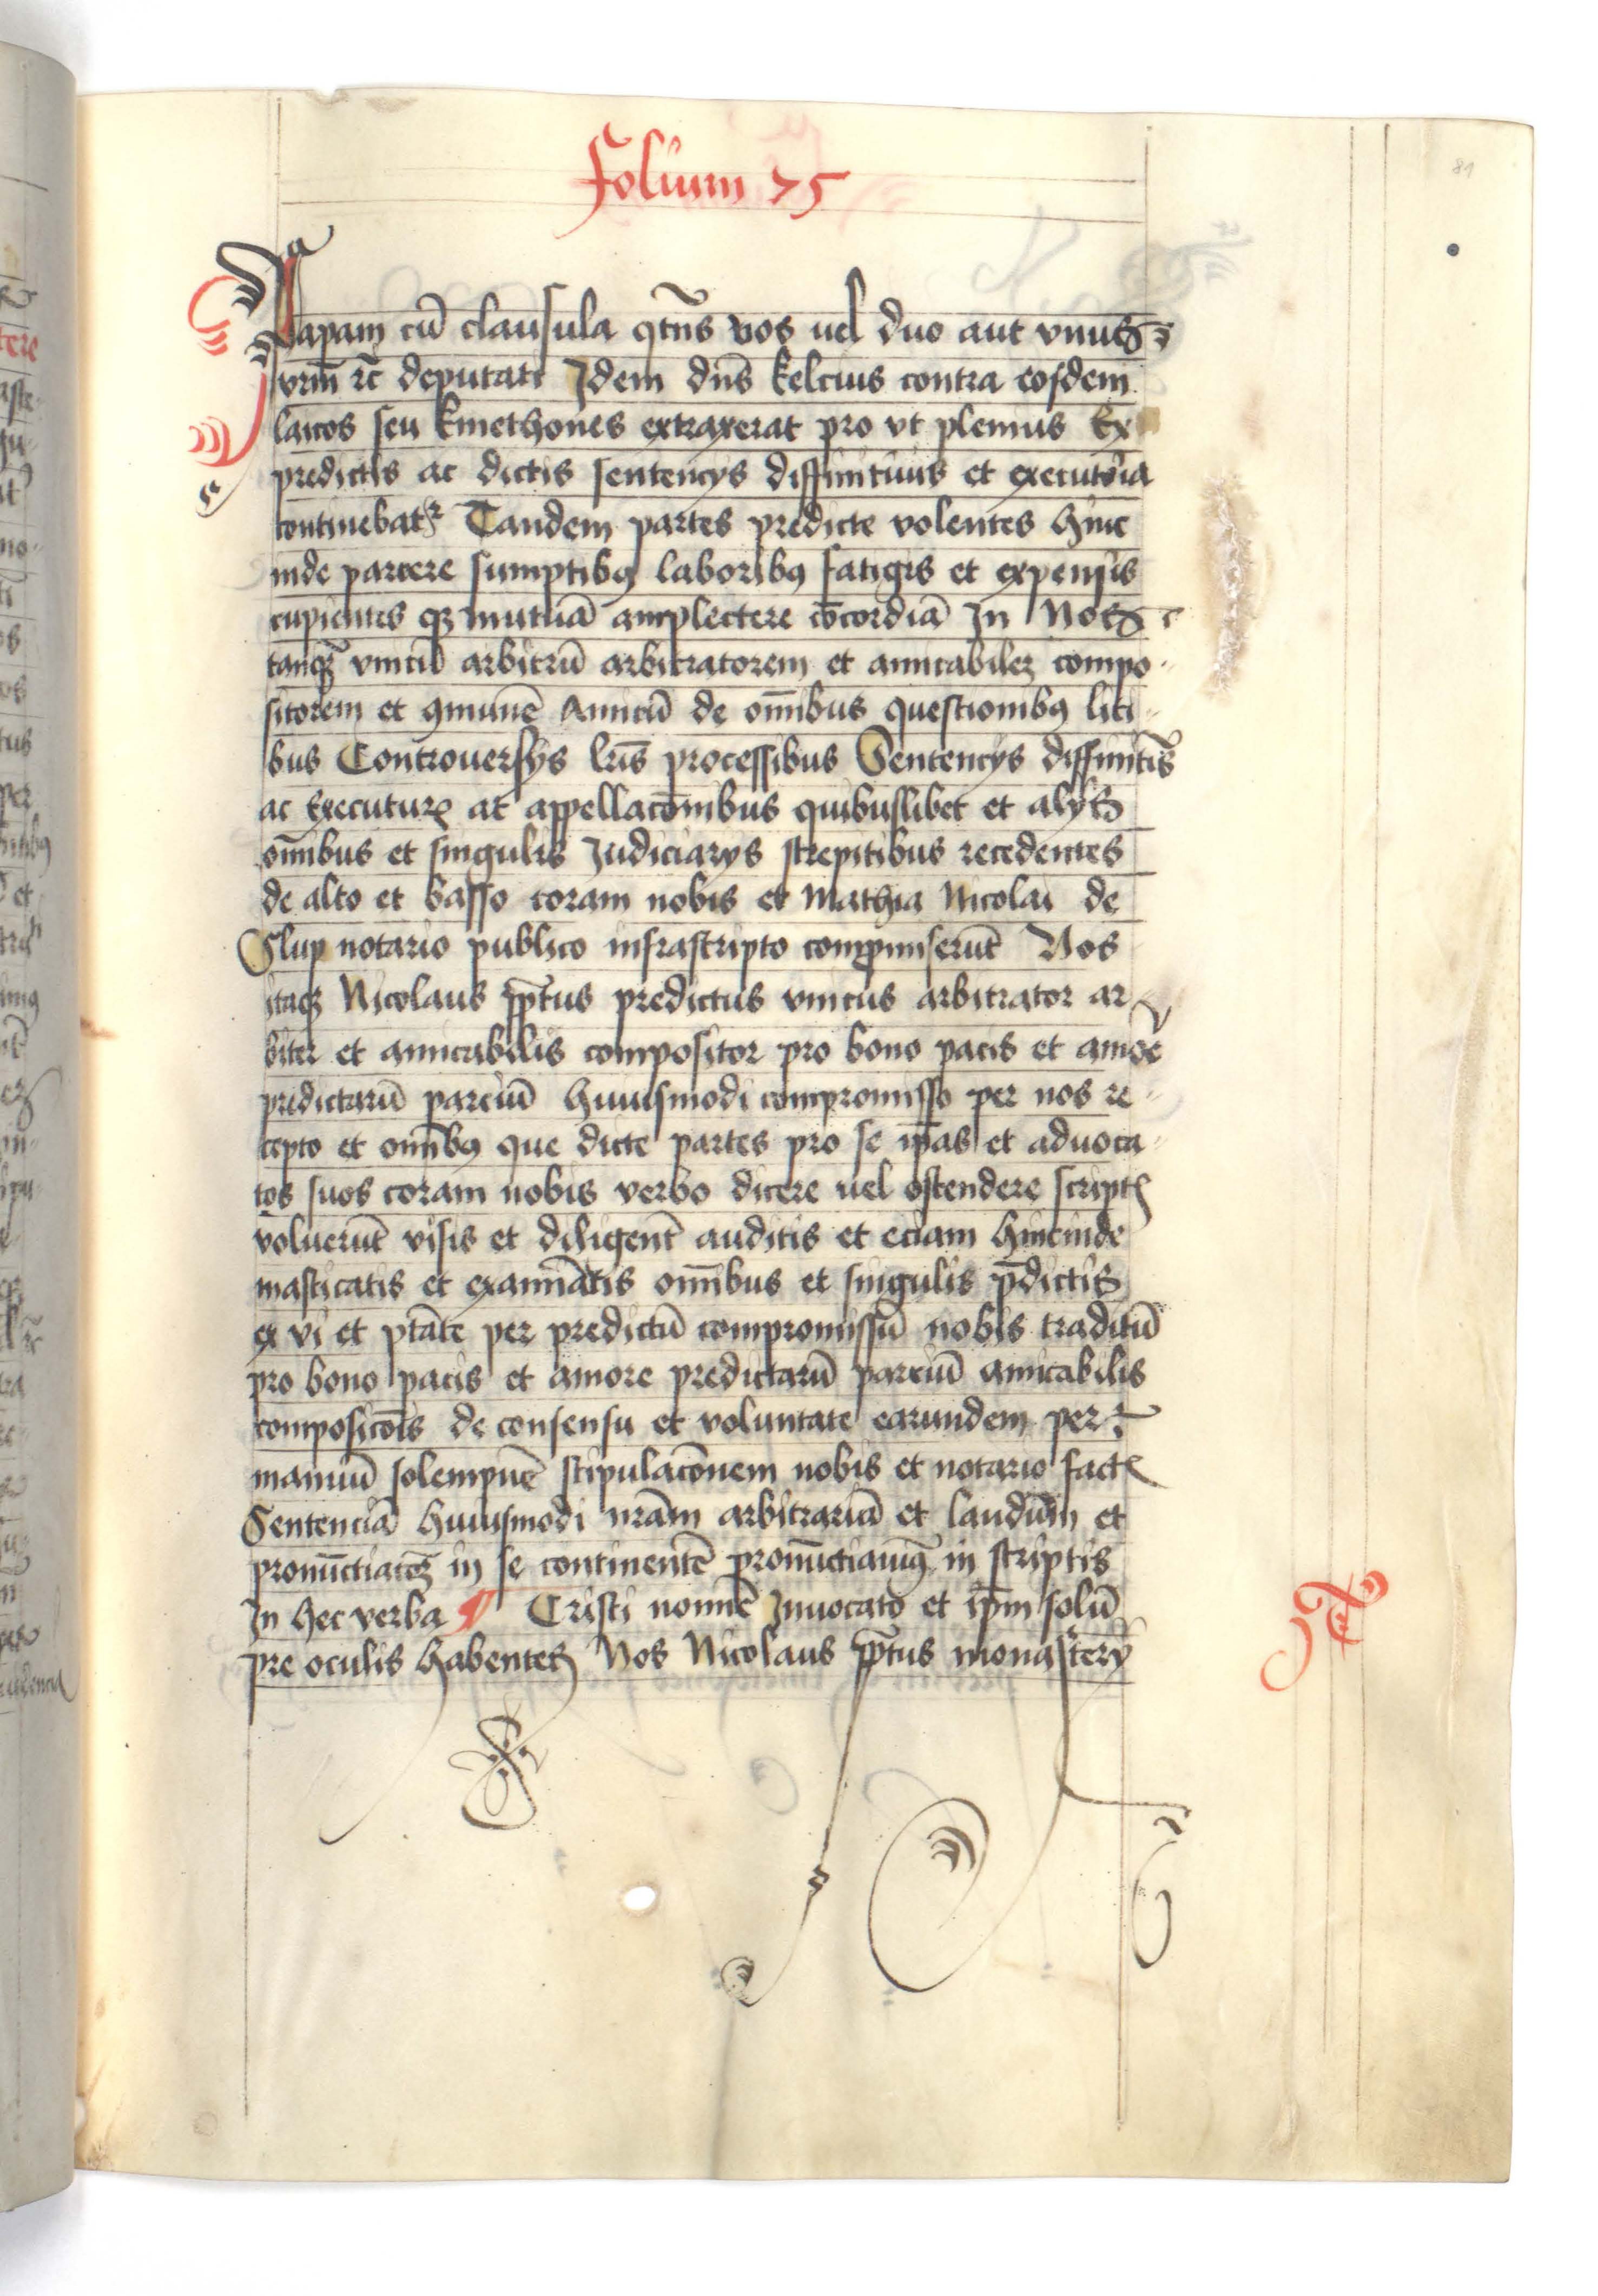 Folium 75
Papam cū clausula qtūs vos uel duo aut vnus
vrm̄ rc̄ deputati Idem dn̄s kelcius contra eosdem
laicos seu kmethones extraxerat pro vt plenius Ex
predictis ac dictis sentencys diffinituis et executoria
continebat᷑ Tandem partes predicte volentes hinc
inde parcere sumptibꝫ laboribꝫ fatigis et expensis
cupientes qꝫ mutuā amplectere cōcordiā In Nos
tanqꝫ vnicū arbitrū arbitratorem et amicabilem compo
sitorem et ꝯmunē Amicū de om̄ibus questionibꝫ liti
bus Controuersys lr̄is processibus Sentencys diffinitis
ac Executure at appellacōnibus quibuslibet et alys
om̄ibus et singulis Iudiciarys strepitibus recedentes
de alto et basso coram nobis et Mathia Nicolai de
Slup notario publico infrascripto compromiserūt Nos
itaqꝫ Nicolaus pp̄tus predictus vnicus arbitrator ar
biter et amicabilis compositor pro bono pacis et amōe
predictarū parciū huiusmodi compromisso per nos re
cepto et om̄ibꝫ que dicte partes pro se ip̄as et aduoca
tos suos coram nobis verbo dicere uel ostendere script
voluerūt visis et diligent̄ auditis et eciam hincinde
masticatis et examīatis om̄ibus et singulis p̄dictis
ex vi et ptāte per predictū compromissū nobis traditū
pro bono pacis et amore predictarū parciū amicabilis
composicōis de consensu et voluntate earundem per
manuū solempnē stipulacōnem nobis et notario fact
Sentenciā huiusmodi nrām arbitrariā et laudūm et
pronūctiatoꝫ in se continentē pronūctiamꝰ in scriptis
In hec verba ¶ Cristi nomīe Inuocato et ip̄m solū
pre oculis habentes Nos Nicolaus pp̄tus monastery
81